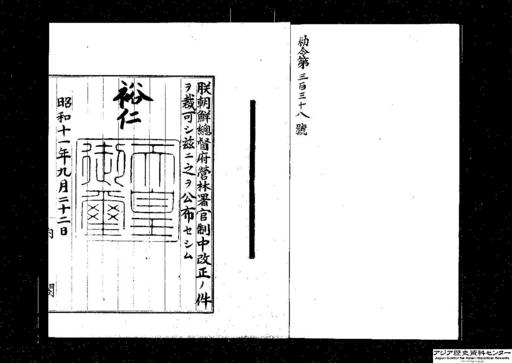 勅令第三百三十八號
朕朝鮮總督府營林署官制中改正ノ件
ヲ裁可シ茲ニ之ヲ公布セシム
裕仁
天皇
御璽
昭和十一年九月二十二日
内閣
アジア歴史資料センター
Japan Center for Asian Historical Records